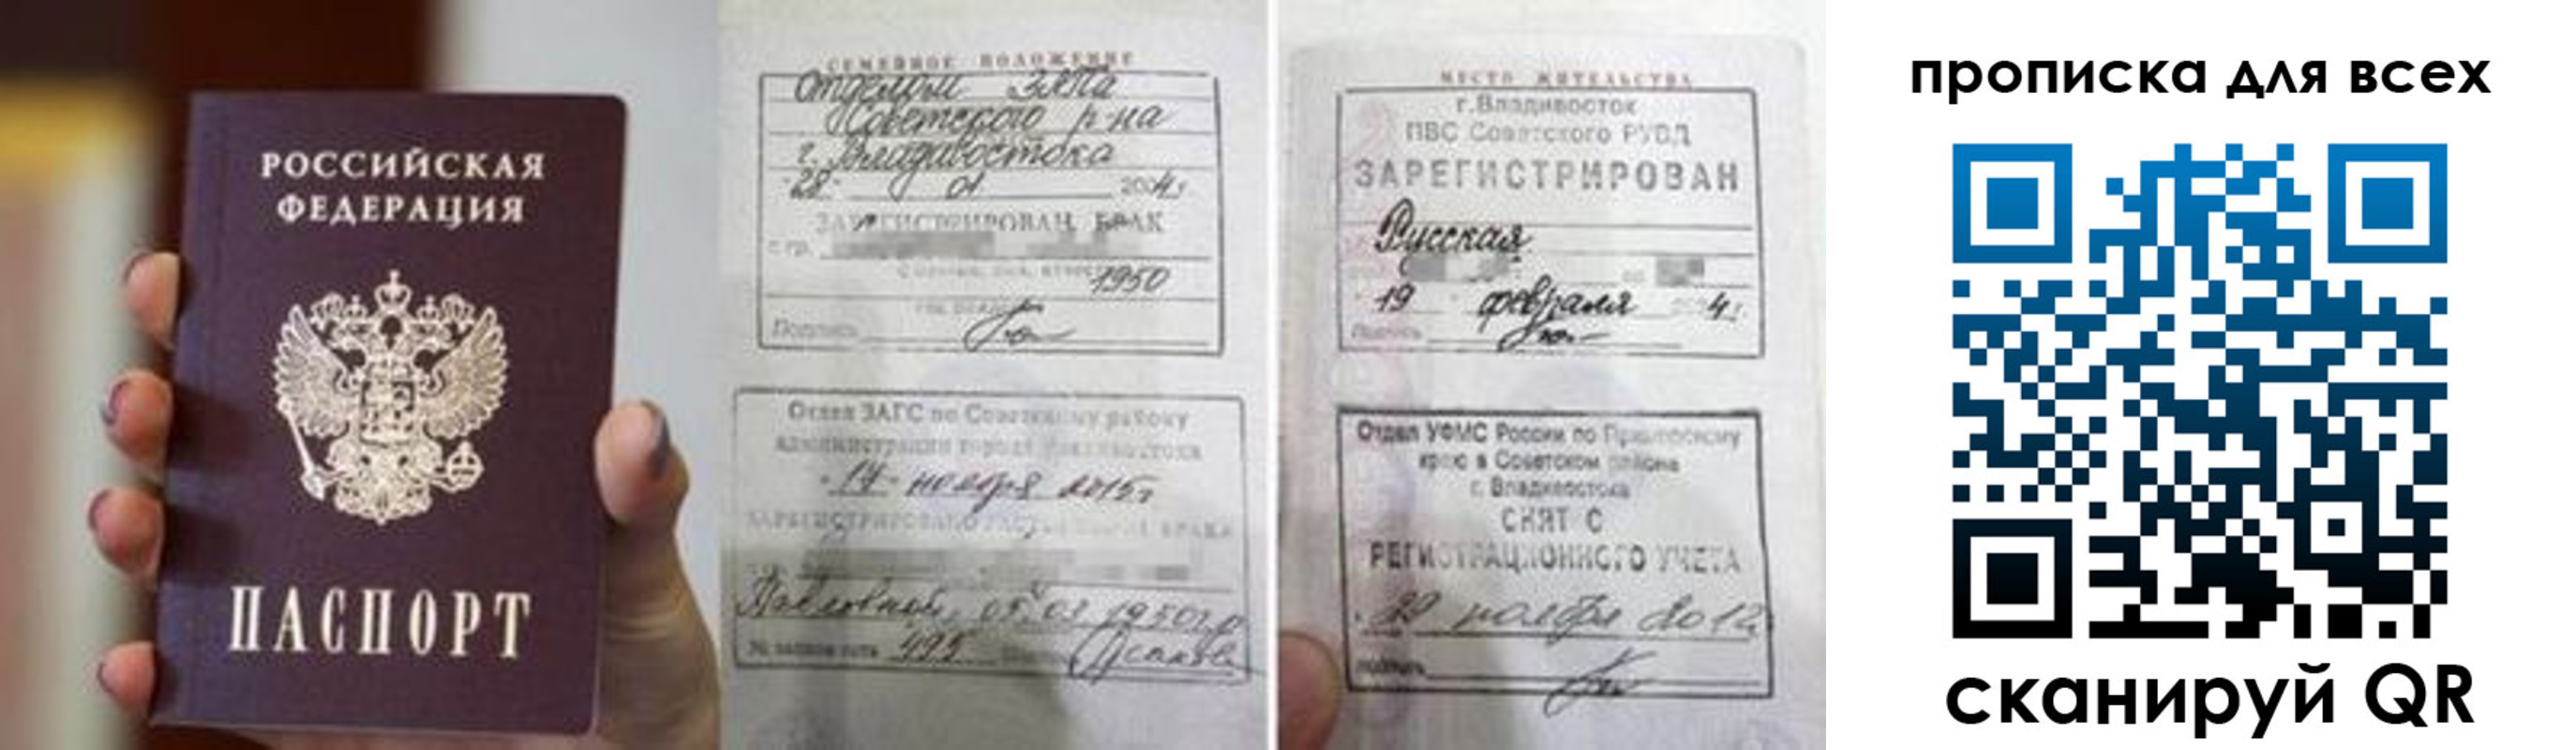 РОССИЙСКАЯ
ФЕДЕРАЦИЯ
ПАСПОРТ
СЕМЕЙНОЕ ПОЛОЖЕНИЕ
Отделом
Советского р-на
г. Владивостока
"28" 01 2004 г.
ЗАРЕГИСТРИРОВАН БРАК
с гр.
1950
Подпись
Отдел ЗАГС по Советскому району
администрации города Владивостока
ноября 2015г
Павловной, 05.03 1950г.р
№ записи акта 495
МЕСТО ЖИТЕЛЬСТВА
г.Владивосток
ПВС Советского РУВД
ЗАРЕГИСТРИРОВАН
Русская
19 февраля 4г
Подпись
Отдел УФМС России по Приморскому
краю в Советском районе
г. Владивостока
СНЯТ С
РЕГИСТРАЦИОННОГО УЧЕТА
ноября 2012
подпись
прописка для всех
сканируй QR